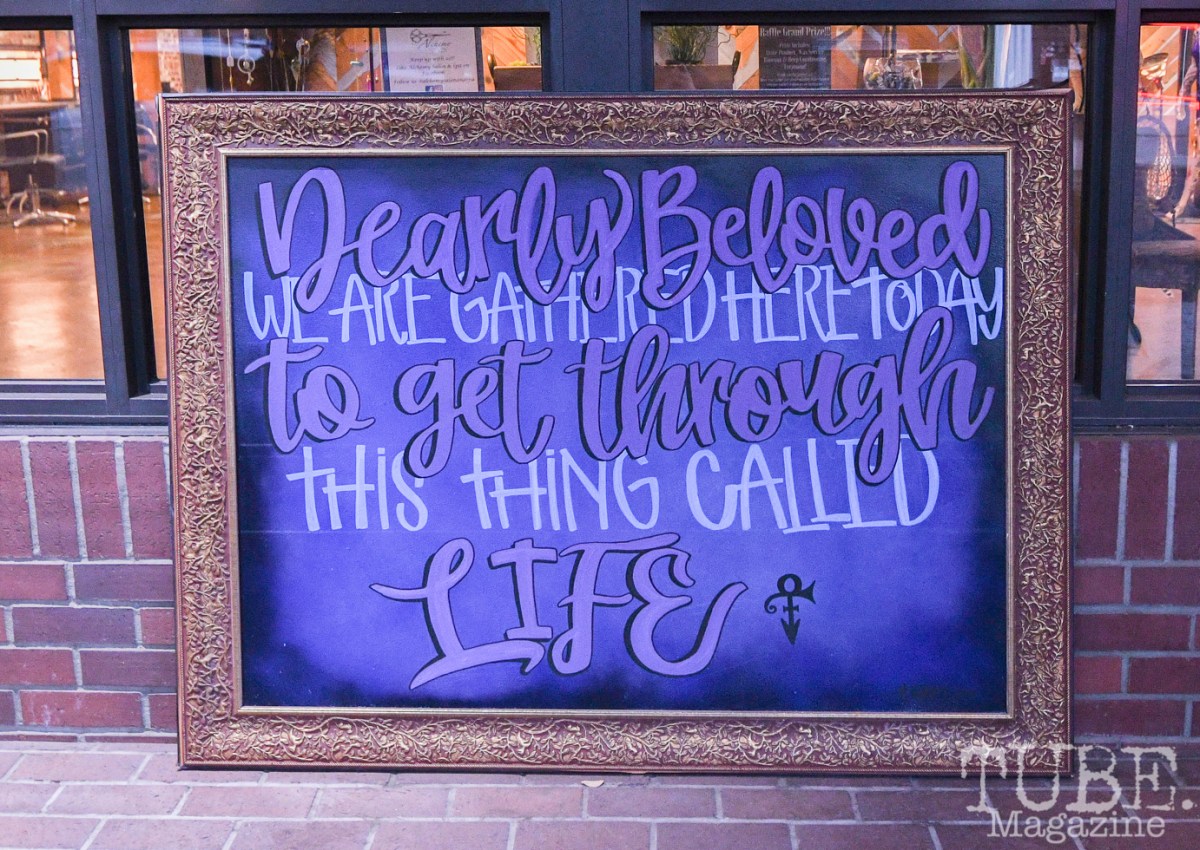 Raffle Grand Prize!!!
Dearly Beloved
WE ARE GATHERED HERE TODAY
to get through
THIS THING CALLED
LIFE
TUBE.
Magazine